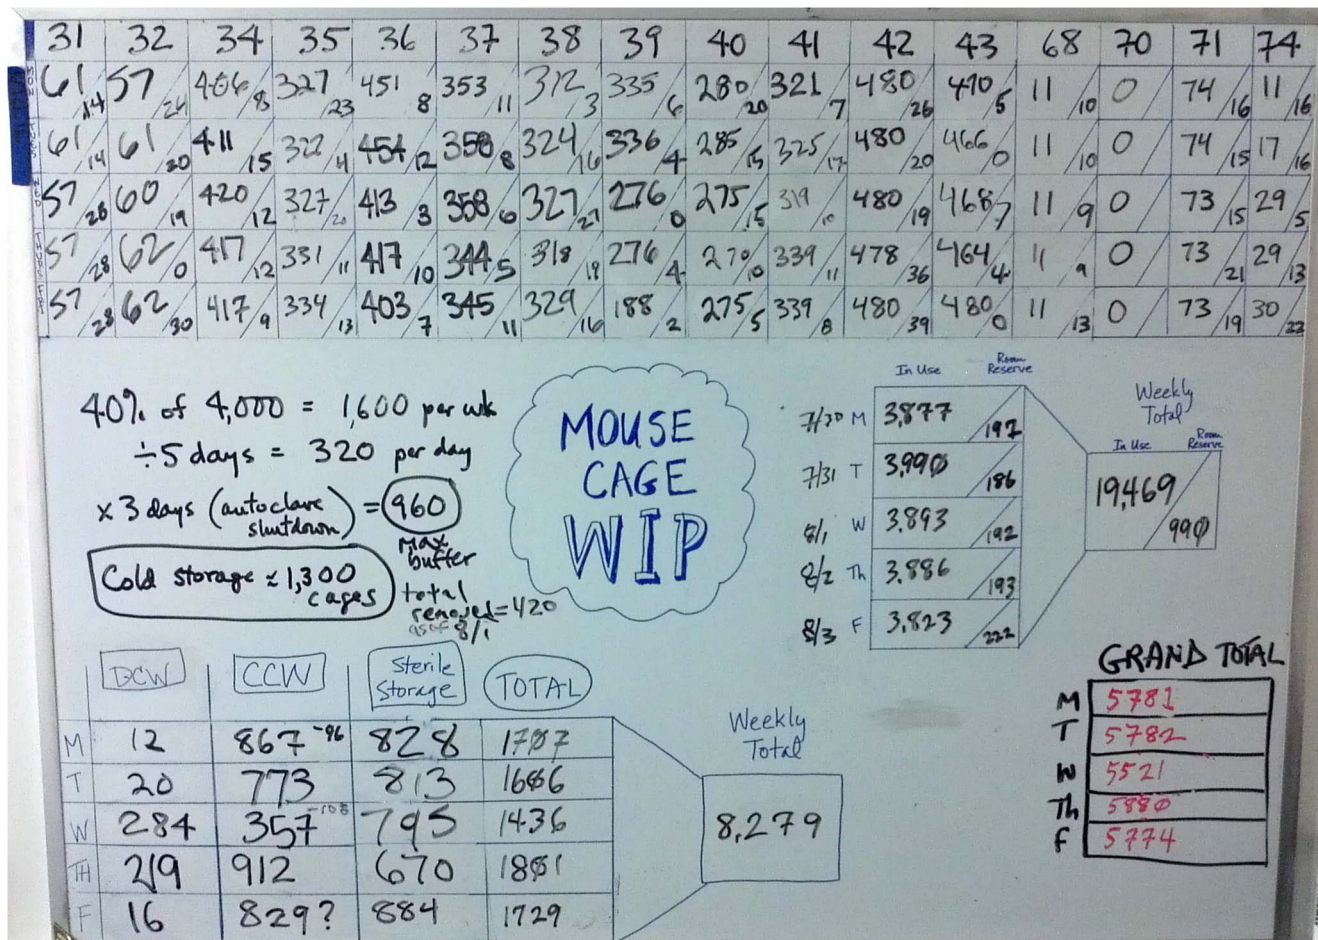 31 32 34 35 36 37 38 39 40 41 42 43 68 70 71 74
MON 61/14 57/24 406/8 327/23 451/8 353/11 312/3 335/6 280/20 321/7 480/26 470/5 11/10 0/ 74/16 11/16
TUES 61/14 61/20 411/15 322/4 454/12 350/8 324/16 336/4 285/15 325/17 480/20 466/0 11/10 0/ 74/15 17/16
WED 57/28 60/19 420/12 327/20 413/3 358/6 327/27 276/0 275/15 319/10 480/19 468/7 11/9 0/ 73/15 29/5
THURS 57/28 62/0 417/12 331/11 417/10 344/5 318/18 276/4 270/10 339/11 478/36 464/4 11/9 0/ 73/21 29/13
FRI 57/28 62/30 417/9 334/13 403/7 345/11 329/16 188/2 275/5 339/8 480/39 480/0 11/13 0/ 73/19 30/22
40% of 4,000 = 1,600 per wk
÷5 days = 320 per day
x 3 days (autoclave shutdown) = 960
max buffer
Cold storage ≈ 1,300 cages
total
removed = 420
as of 8/1
MOUSE
CAGE
WIP
In Use Room Reserve
7/30 M 3,877/192
7/31 T 3,990/186
8/1 W 3,893/192
8/2 Th 3,886/193
8/3 F 3,823/222
Weekly
Total
In Use Room Reserve
19,469/990
DCW CCW Sterile Storage TOTAL
M 12 867 -96 828 1707
T 20 773 813 1606
W 284 357 -103 795 1436
TH 219 912 670 1801
F 16 829? 884 1729
Weekly
Total
8,279
GRAND TOTAL
M 5781
T 5782
W 5521
Th 5880
F 5774